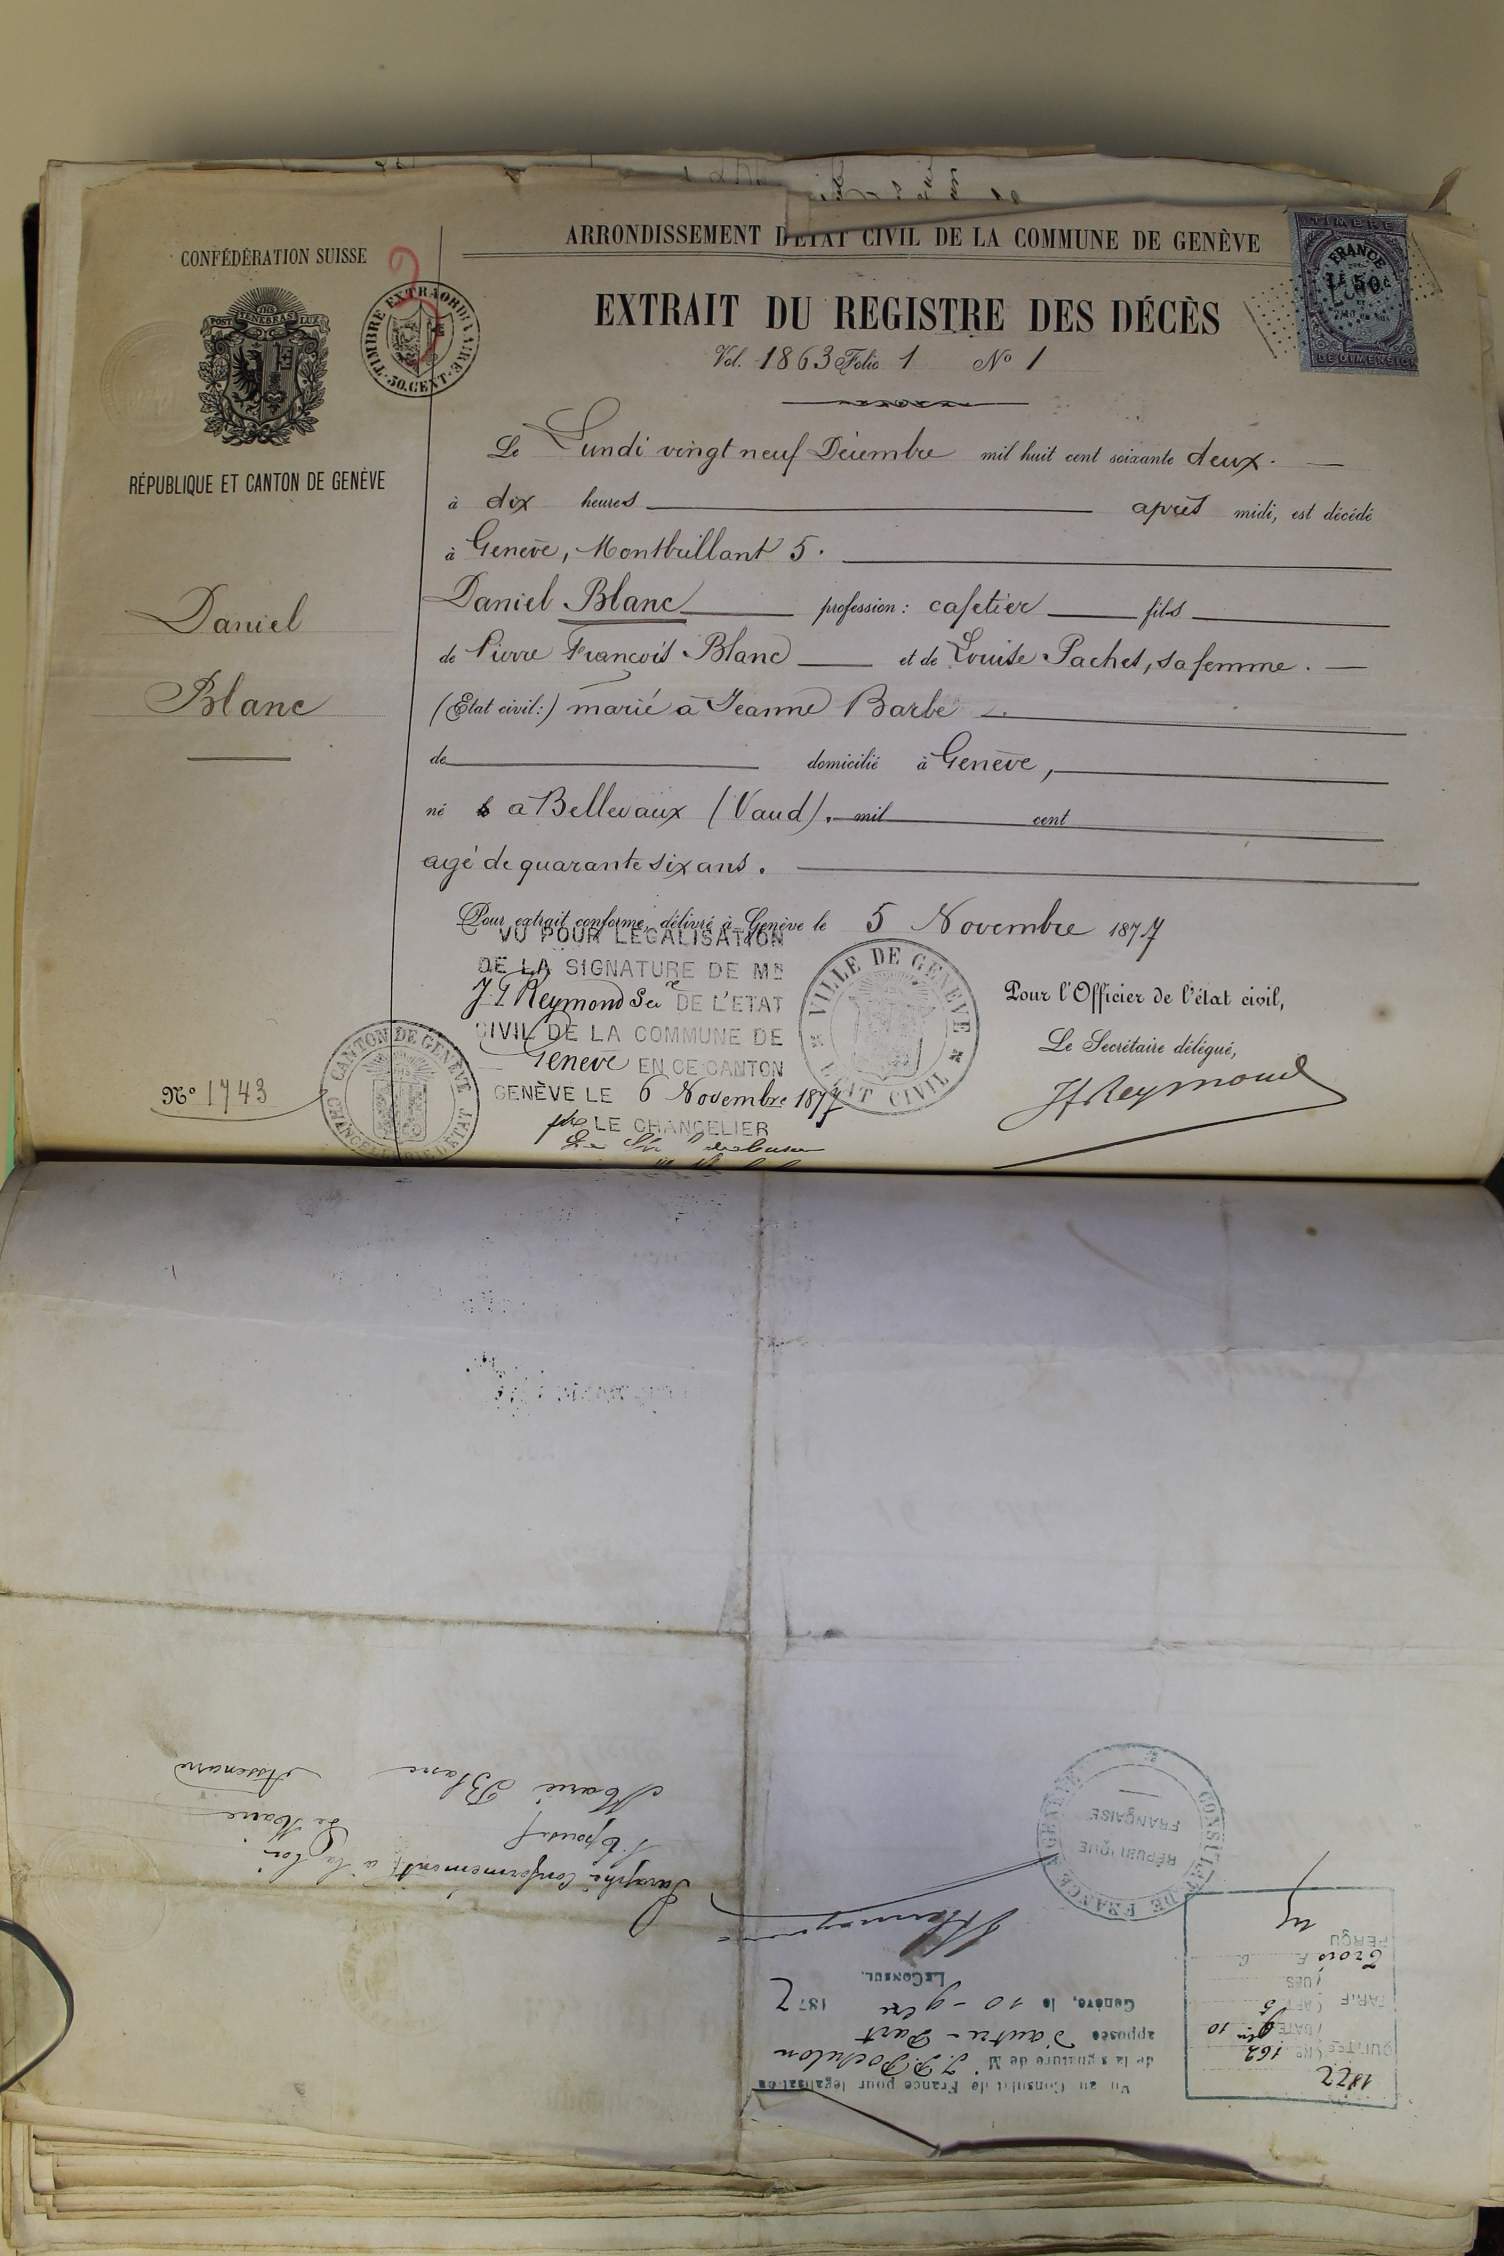 ARRONDISSEMENT D'ÉTAT CIVIL DE LA COMMUNE DE GENÈVE
CONFÉDÉRATION SUISSE
TIMBRE EXTRAORDINAIRE
50.CENT.
POST TENEBRAS LUX
RÉPUBLIQUE ET CANTON DE GENÈVE
TIMBRE
FRANCE
50c
DE DIMENSION
EXTRAIT DU REGISTRE DES DÉCÈS
Vol. 1863 Folio 1 No 1
Le Lundi vingt neuf Décembre mil huit cent soixante deux.
à dix heures après midi, est décédé
à Genève, Montbrillant 5.
Daniel Blanc profession: cafetier fils
de Pierre François Blanc et de Louise Pachet, sa femme.
(Etat civil:) marié à Jeanne Barbe
de domicilié à Genève,
né à Bellevaux (Vaud). mil cent
agé de quarante six ans.
Daniel
Blanc
Pour extrait conforme, délivré à Genève le 5 Novembre 1877
VU POUR LÉGALISATION
DE LA SIGNATURE DE MR
J. F. Reymond Sec re DE L'ETAT
CIVIL DE LA COMMUNE DE
Genève EN CE CANTON
GENÈVE LE 6 Novembre 1877
LE CHANCELIER
VILLE DE GENÈVE
ETAT CIVIL
Pour l'Officier de l'état civil,
Le Secrétaire délégué,
JfReymond
No 1743
CANTON DE GENÈVE
CHANCELLERIE D'ETAT
1877
QUITTCES No 162
DATE 10
TARIF ART 5
VUS
Trois F. C.
PERÇU
Vu au Consulat de France pour légalisation
de la signature de Mr
apposée d'autre-Part
Genève, le 10 - 9bre 1877
LE CONSUL.
CONSULAT DE FRANCE GENÈVE
RÉPUBLIQUE
FRANÇAISE
Paraphé conformément à la loi
L'Epouse Le Maire
Marie Blanc